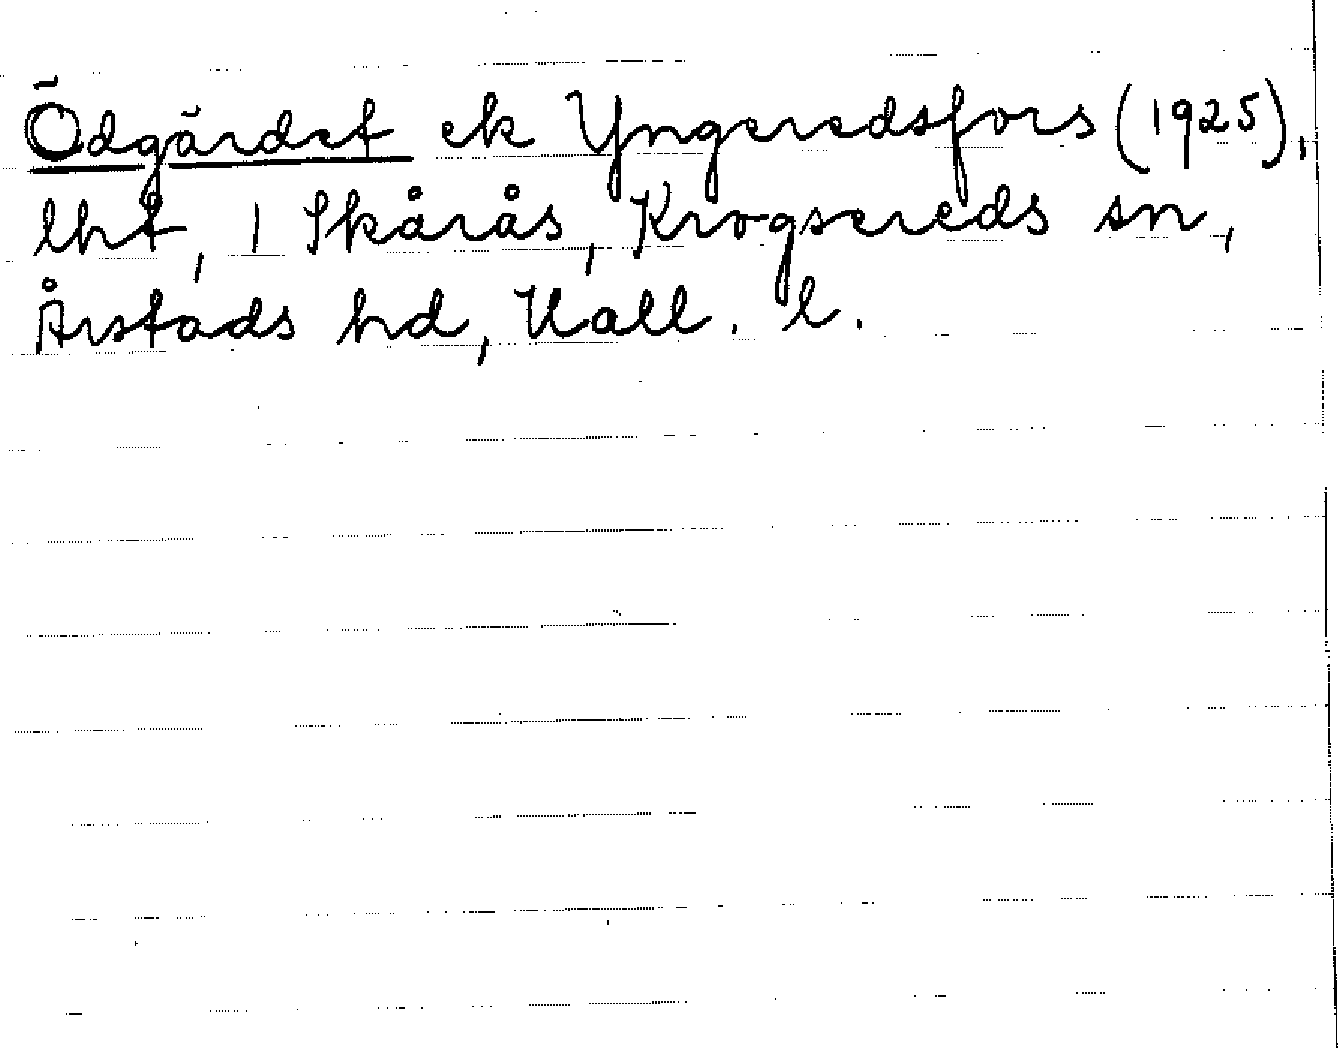 Ödgärdet ek Yngeredsfors (1925),
lht, 1 Skårås, Krogsereds sn,
Årstads hd, Hall. l.